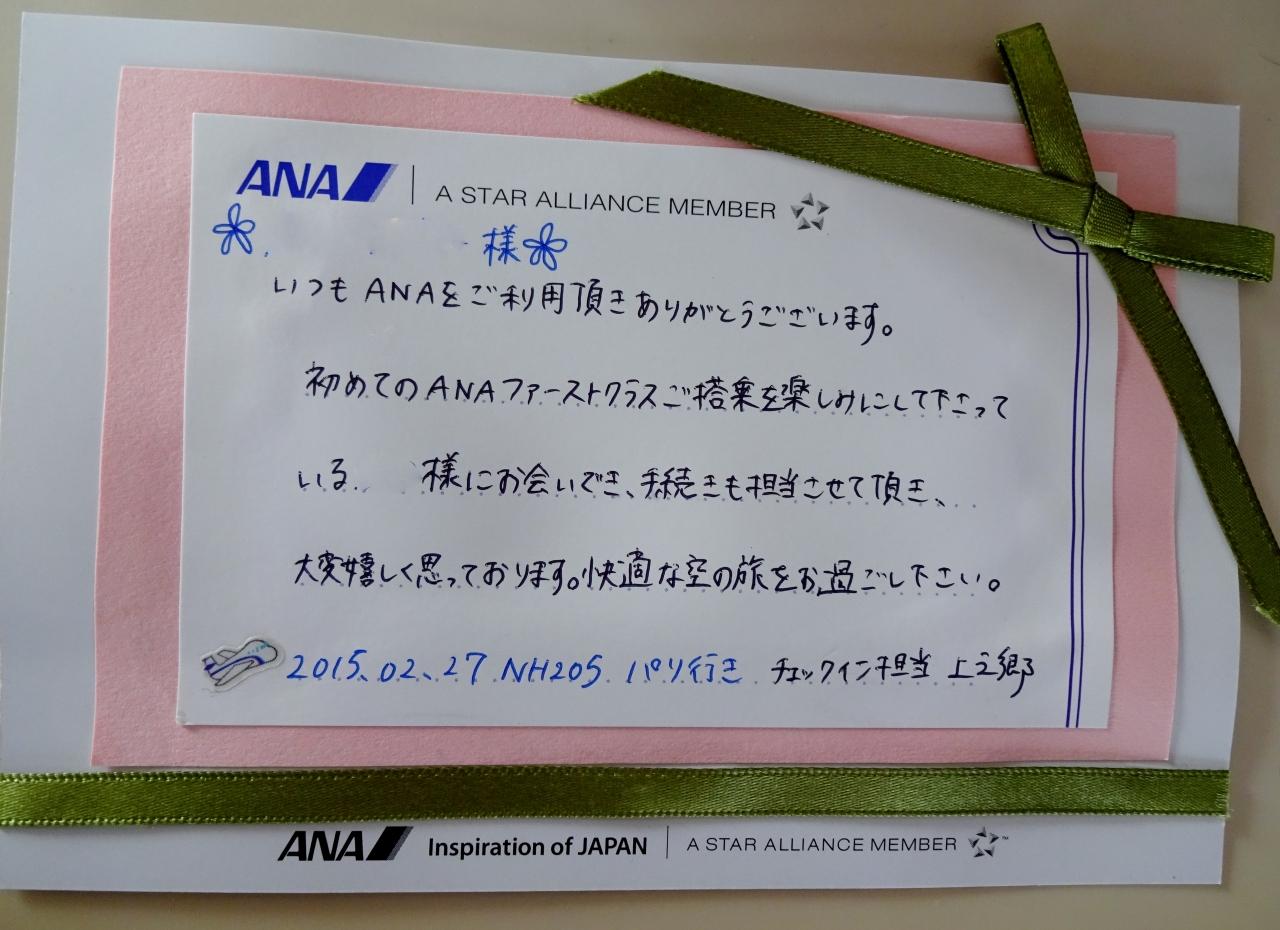 ANA A STAR ALLIANCE MEMBER
様
いつもANAをご利用頂きありがとうございます。
初めてのANAファーストクラスご搭乗を楽しみにして下さって
いる 様にお会いでき、手続きも担当させて頂き、
大変嬉しく思っております。快適な空の旅をお過ごし下さい。
2015.02.27 NH205 パリ行き チェックイン担当 上之郷
ANA Inspiration of JAPAN A STAR ALLIANCE MEMBER ™